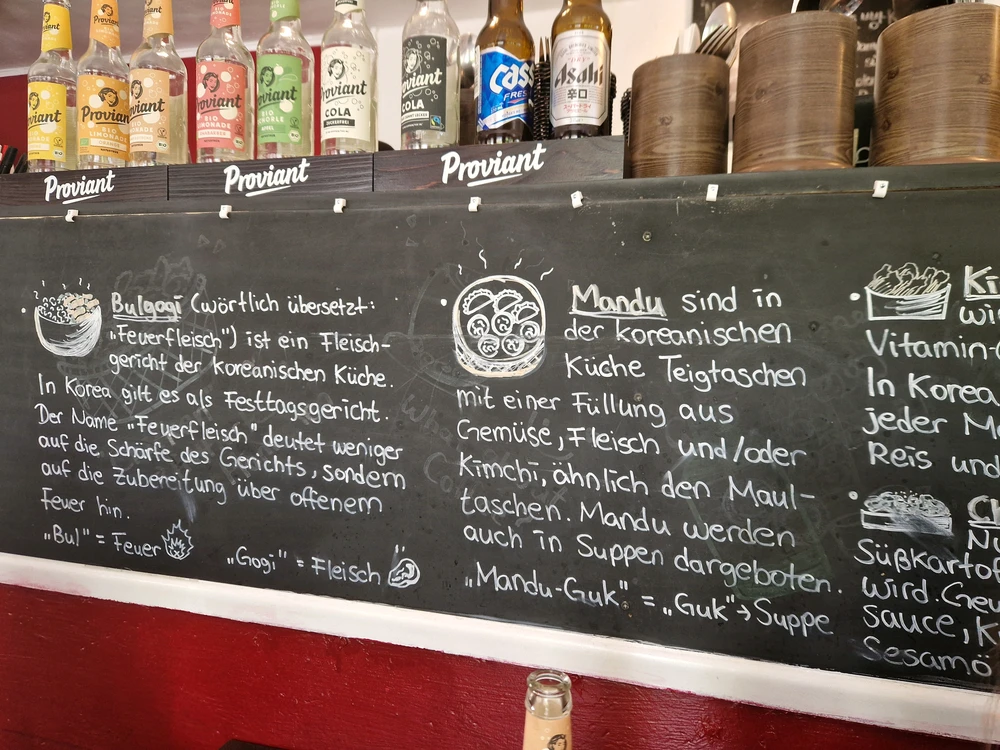 Proviant
Proviant
BIO
LIMONADE
Proviant
BIO
LIMONADE
Proviant
BIO
LIMONADE
Proviant
BIO
SCHORLE
APFEL
Proviant
COLA
ZUCKERFREI
Proviant
COLA
Cass
FRES
Asahi
辛口
Proviant
Proviant
Proviant
Bulgogi (wörtlich übersetzt:
„Feuerfleisch") ist ein Fleisch-
gericht der koreanischen Küche.
In Korea gilt es als Festtagsgericht.
Der Name „Feuerfleisch" deutet weniger
auf die Schärfe des Gerichts, sondern
auf die Zubereitung über offenem
Feuer hin.
„Bul" = Feuer
„Gogi" = Fleisch
Mandu sind in
der koreanischen
Küche Teigtaschen
mit einer Füllung aus
Gemüse, Fleisch und/oder
Kimchi, ähnlich den Maul-
taschen. Mandu werden
auch in Suppen dargeboten.
„Mandu-Guk" = „Guk"→Suppe
Ki
wir
Vitamin-
In Korea
jeder Ma
Reis und
Nu
Süßkartof
wird. Gew
sauce, K
Sesamö